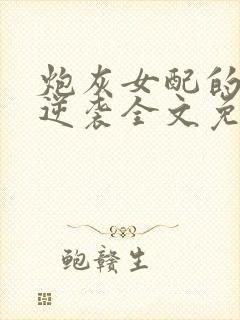 炮灰女配的
逆袭全文免
鲍赣生